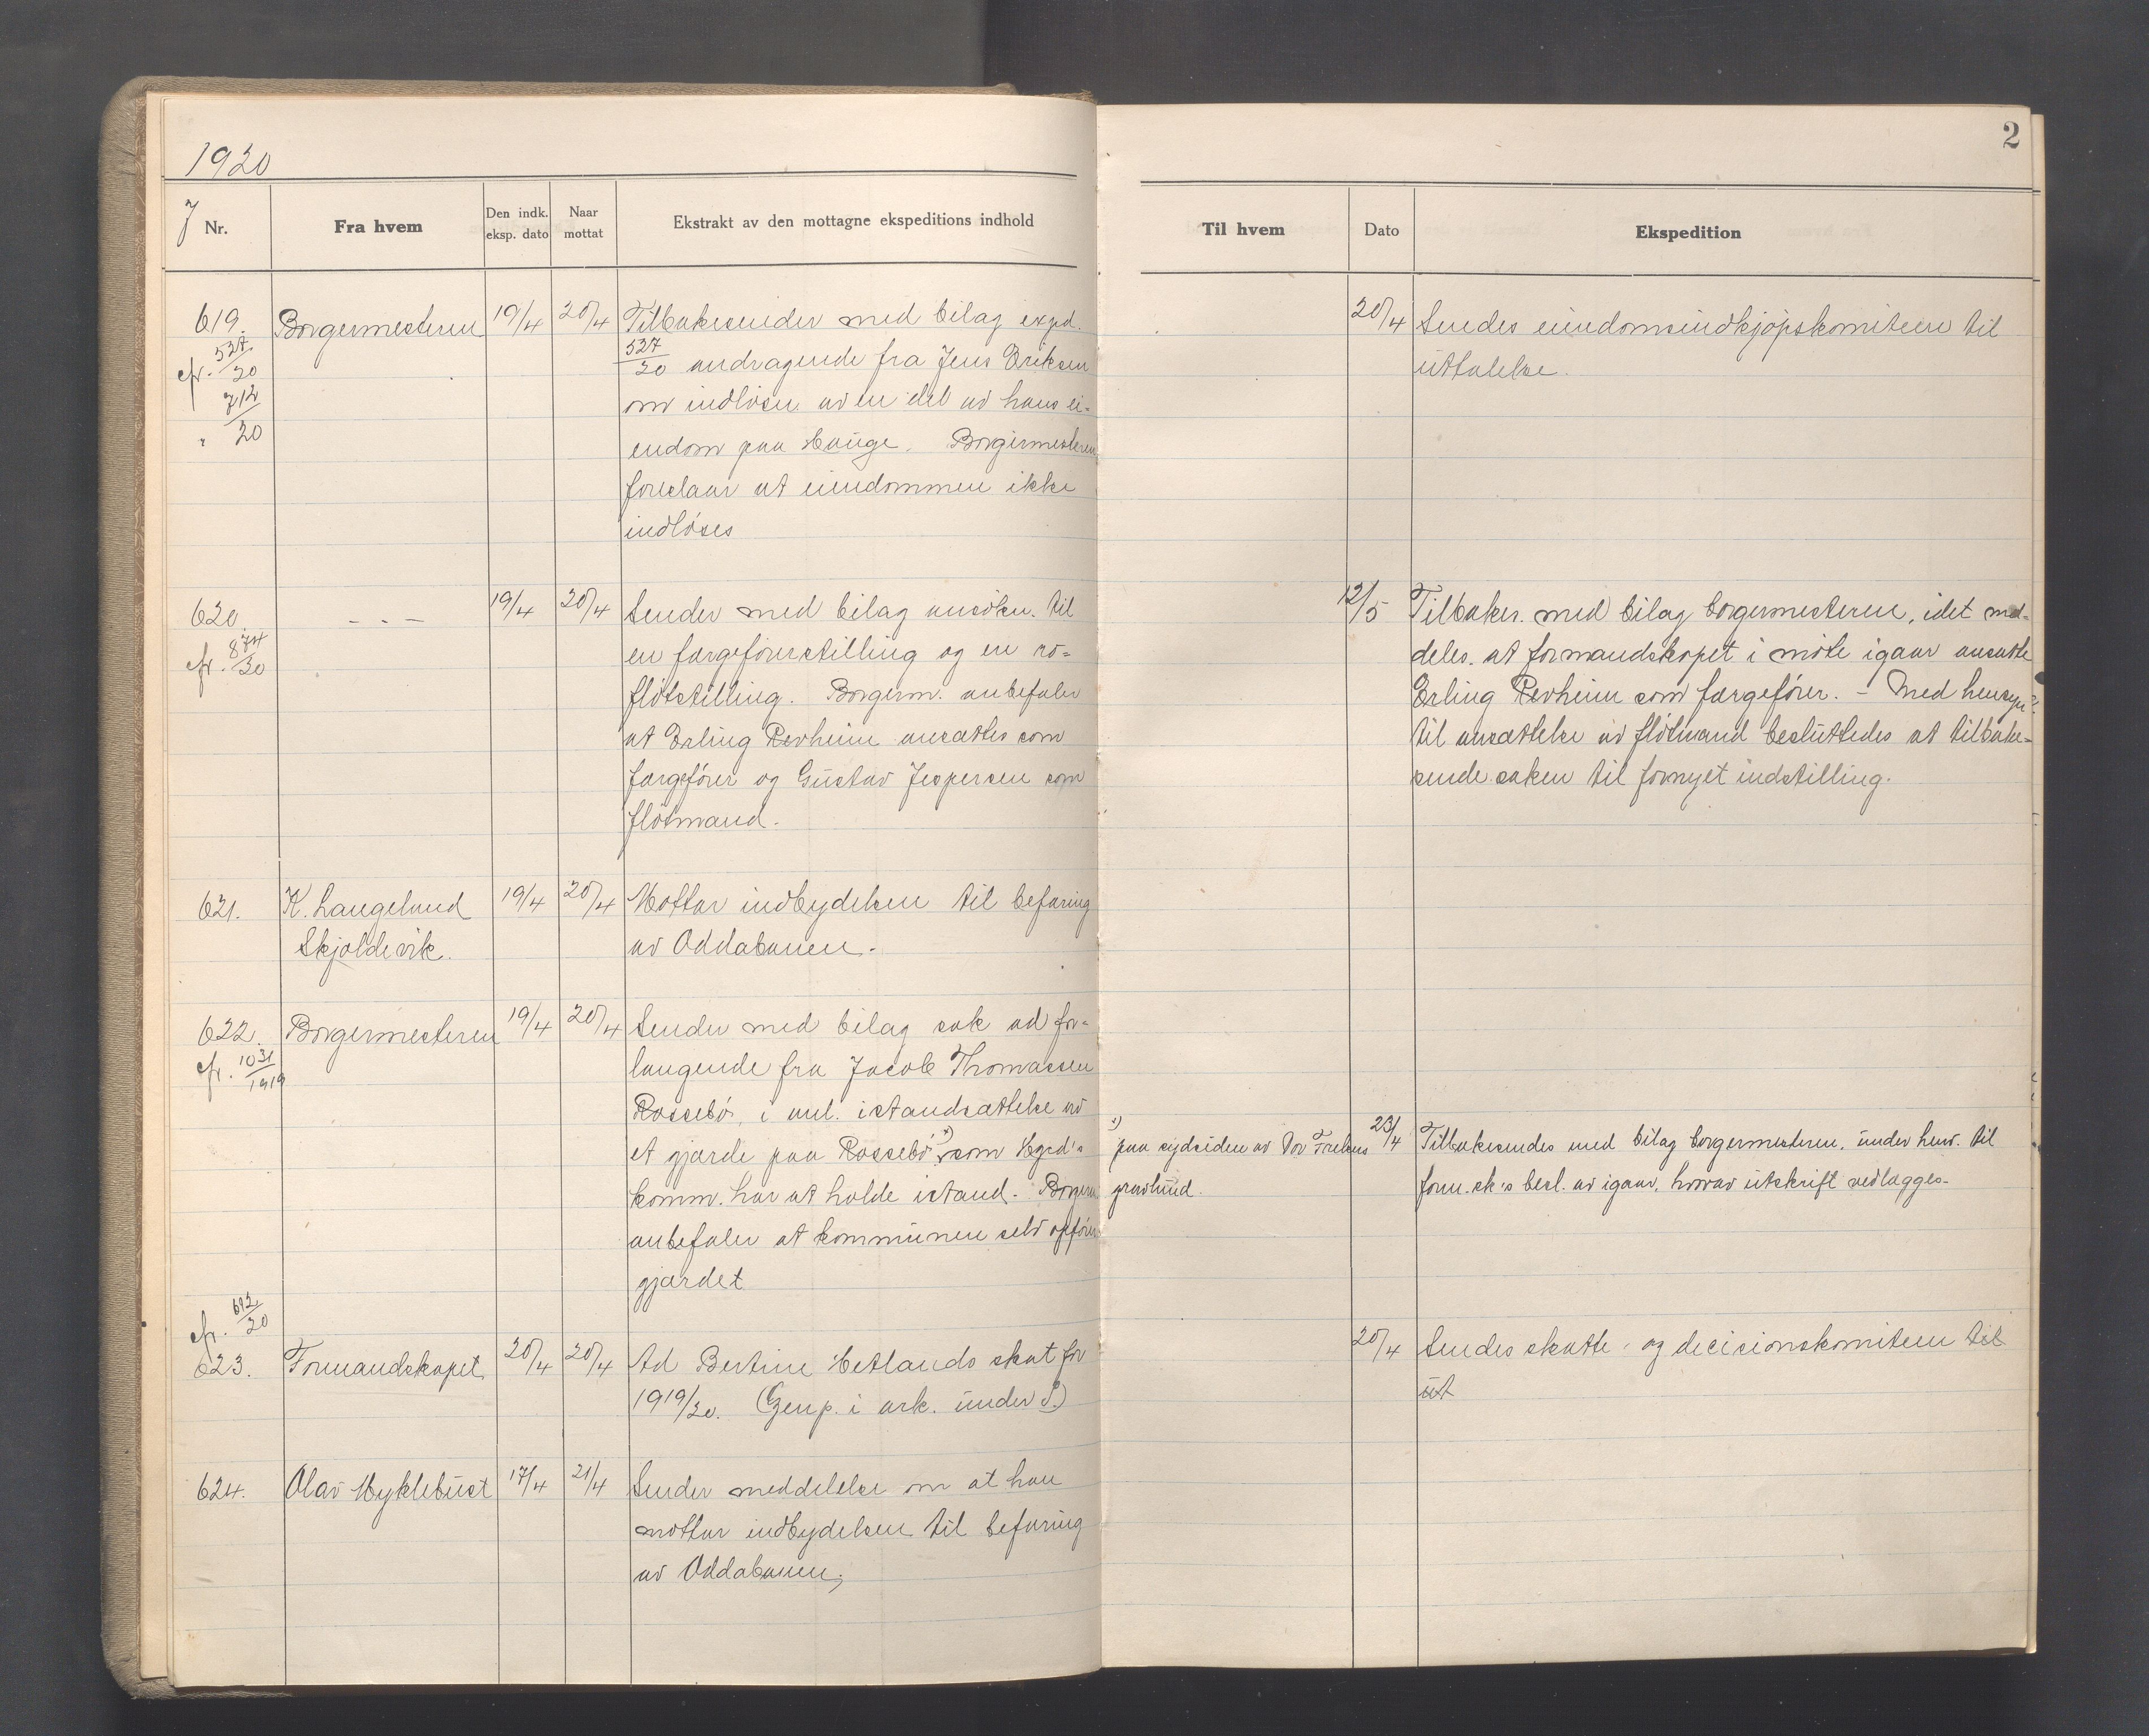 1920
2
J Nr.
Fra hvem
Den indk. eksp. dato
Naar mottat
Ekstrakt av den mottagne ekspeditions indhold
Til hvem
Dato
Ekspedition
619.
cfr. 527/20
712/20
Borgermesteren
19/4
20/4
Tilbakesender med bilag exped.
527/20 andragende fra Jens Eriksen
om indløsn. av en del av hans ei-
endom paa Hauge. Borgermesteren
foreslaar at eiendommen ikke
indløses
20/4
Sendes eiendomsindkjøpskomiteen til
uttalelse.
620.
cfr. 874/20
- " -
19/4
20/4
Sender med bilag ansøkn. til
en færgeførerstilling og en re-
fløtstilling. Borgerm. anbefaler
at Erling Revheim ansættes som
færgefører og Gustav Jespersen som
fløtmand.
12/5
Tilbakes. med bilag borgermesteren, idet med-
deles. at formandskapet i møte igaar ansatte
Erling Revheim som færgefører. - Med hensyn
til ansættelse av fløtmand besluttedes at tilbake-
sende saken til fornyet indstilling.
621.
K. Langelund
Skjoldevik.
19/4
20/4
Mottar indbydelsen til befaring
av Oddabanen.
622.
cfr. 1031/1919
Borgermesteren
19/4
20/4
Sender med bilag sak ad for-
langende fra Jacob Thomassen
Rossebø, i anl. istandsættelse av
et gjærde paa Rossebø x) som Hgsd's
komm. har at holde istand. Borgerm.
anbefaler at kommunen selv opfører
gjærdet
x) paa sydsiden av Vor Frelsers
gravlund.
23/4
Tilbakesendes med bilag borgermesteren, under henv. til
form.sk's besl. av igaar, hvorav utskrift vedlægges.
cfr. 612/20
623.
Formandskapet
20/4
20/4
Ad Bertine Hetlands skat for
1919/20. (Genp. i ark. under S.)
20/4
Sendes skatte- og decisionskomiteen til
ut
624.
Olav Myklebust
17/4
21/4
Sender meddelelse om at han
mottar indbydelsen til befaring
av Oddabanen;